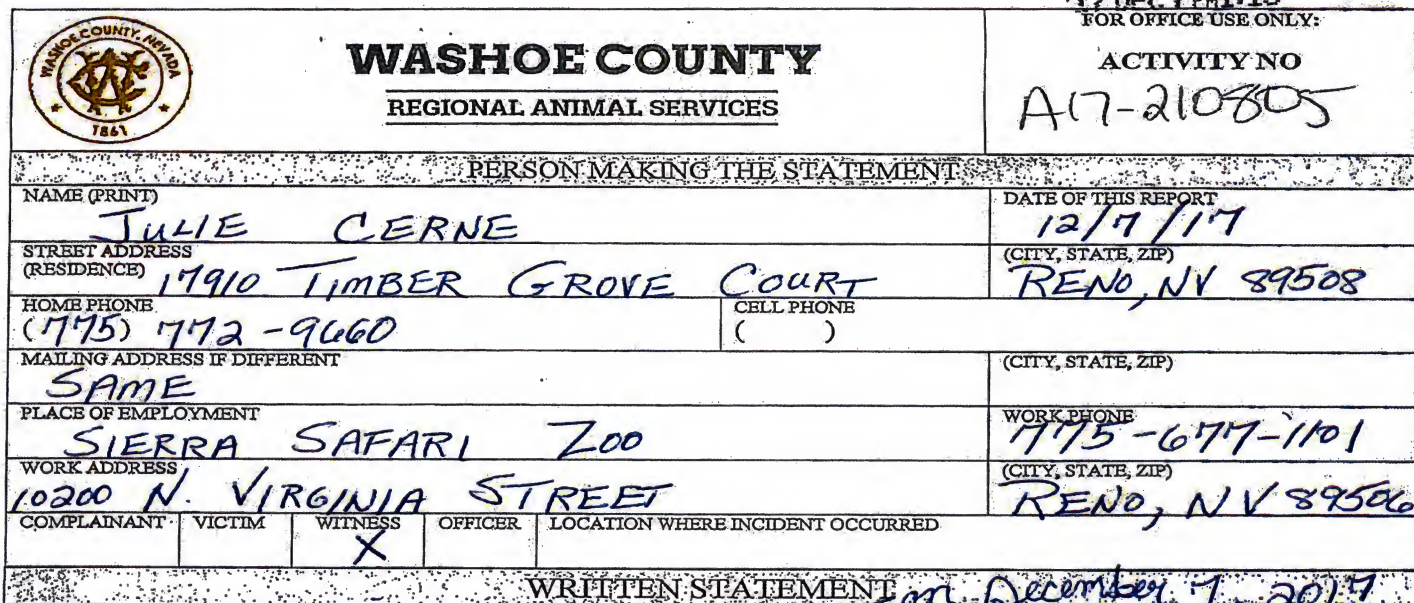 FOR OFFICE USE ONLY:
WASHOE COUNTY, NEVADA
1861
WASHOE COUNTY
REGIONAL ANIMAL SERVICES
ACTIVITY NO
A17-210805
PERSON MAKING THE STATEMENT
NAME (PRINT)
JULIE CERNE
DATE OF THIS REPORT
12/7/17
STREET ADDRESS
(RESIDENCE) 17910 TIMBER GROVE COURT
(CITY, STATE, ZIP)
RENO, NV 89508
HOME PHONE
(775) 772-9660
CELL PHONE
( )
MAILING ADDRESS IF DIFFERENT
SAME
(CITY, STATE, ZIP)
PLACE OF EMPLOYMENT
SIERRA SAFARI ZOO
WORK PHONE
775-677-1101
WORK ADDRESS
10200 N. VIRGINIA STREET
(CITY, STATE, ZIP)
RENO, NV 89506
COMPLAINANT VICTIM WITNESS OFFICER LOCATION WHERE INCIDENT OCCURRED
X
WRITTEN STATEMENT on December 7, 2017